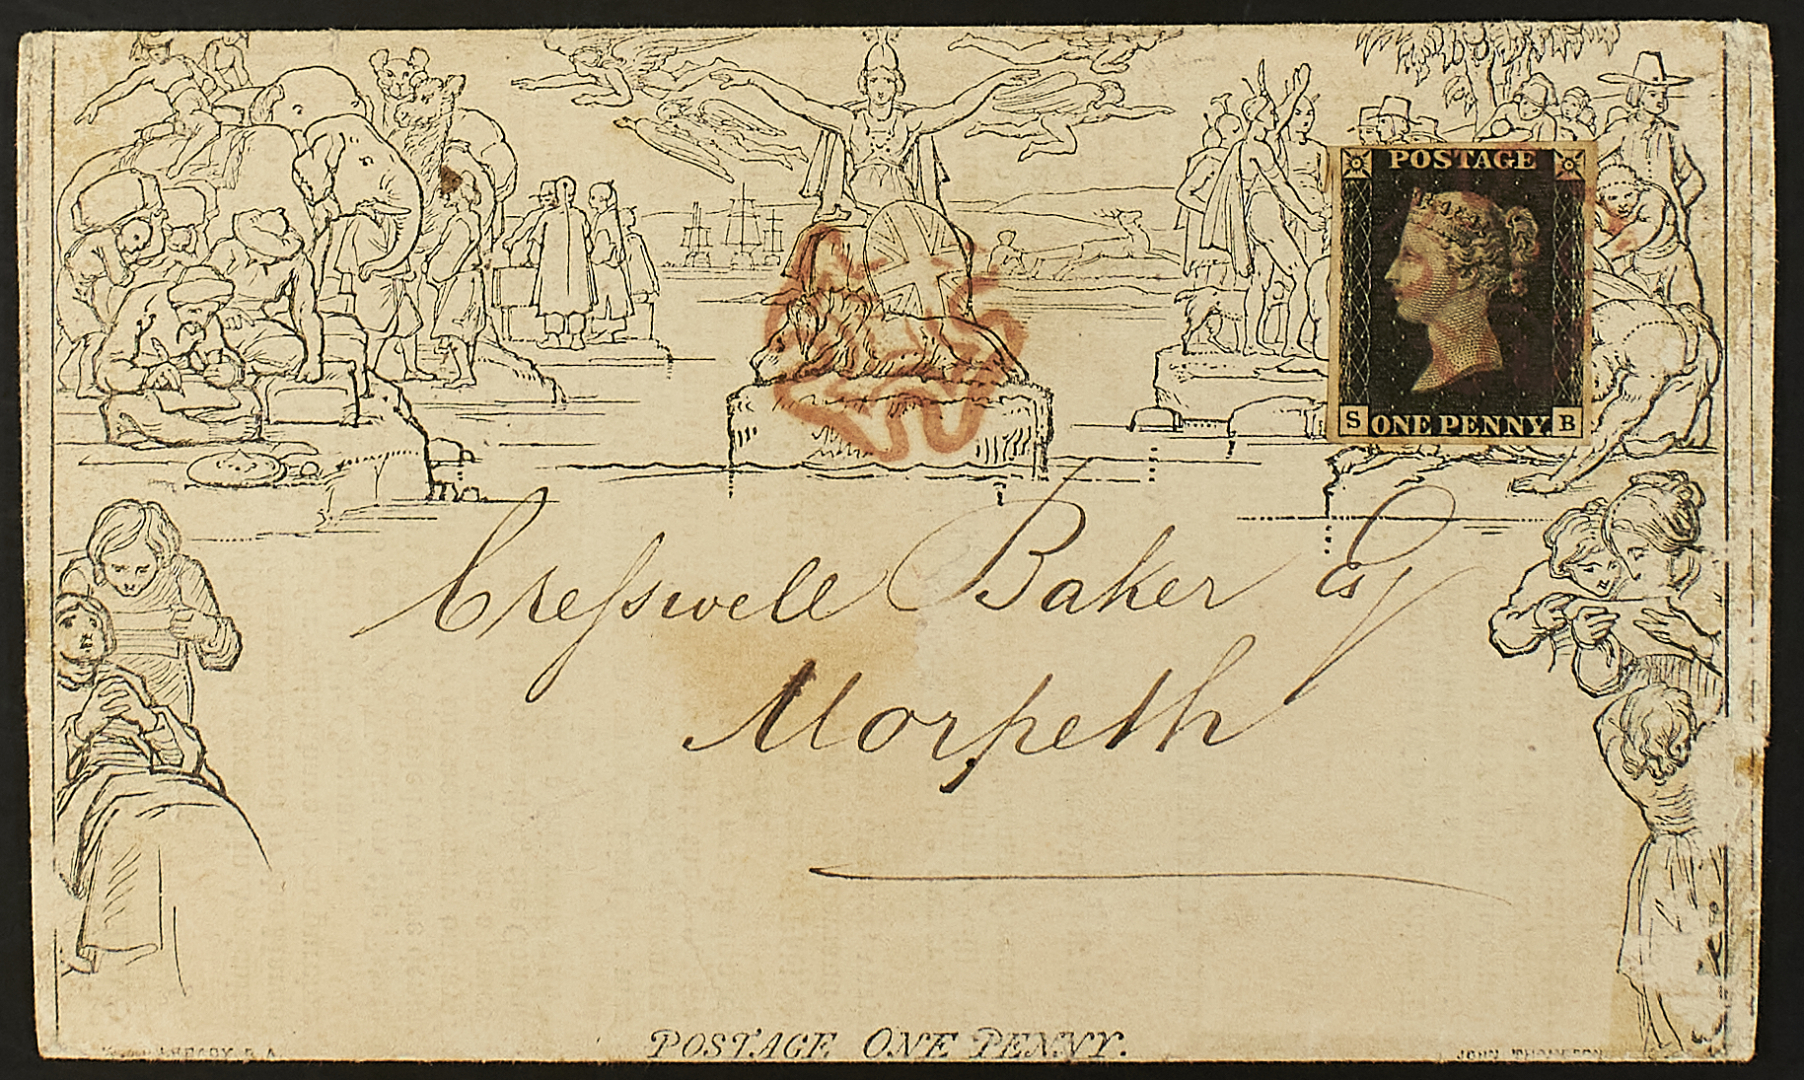 POSTAGE
S ONE PENNY. B
Creſswell Baker Esq
Morpeth
POSTAGE ONE PENNY.
JOHN THOMPSON